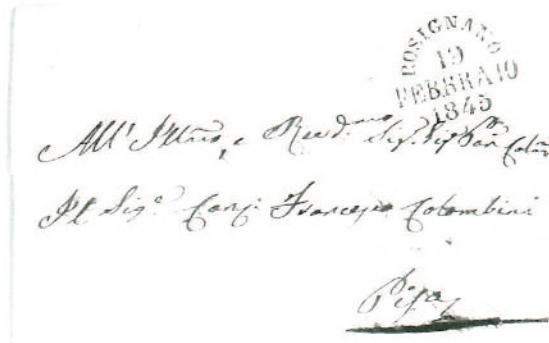 ROSIGNANO
19
FEBBRAIO
1845
All' Illmo, e Revd.mo Sig. Sig. Pron
Il Sig.e Canco Francesco Colombini
Pisa